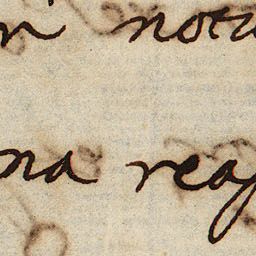 n notu
na reap